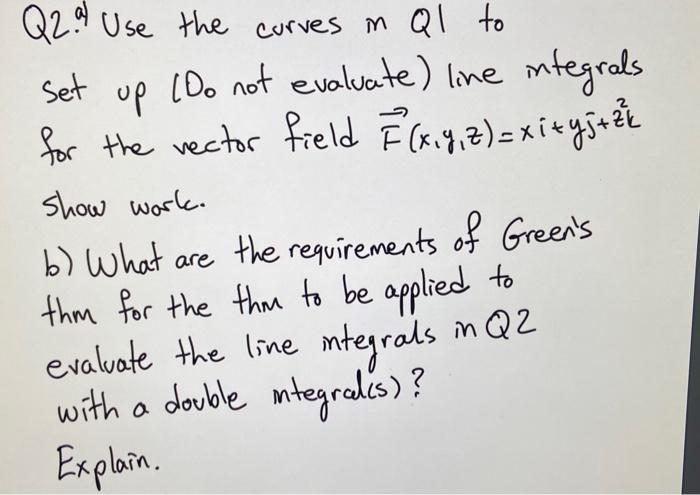 Q2.a) Use the curves in Q1 to
Set up (Do not evaluate) line integrals
for the vector field F⃗(x,y,z)=xi+yj+z²k
Show work.
b) What are the requirements of Green's
thm for the thm to be applied to
evaluate the line integrals in Q2
with a double integral(s)?
Explain.